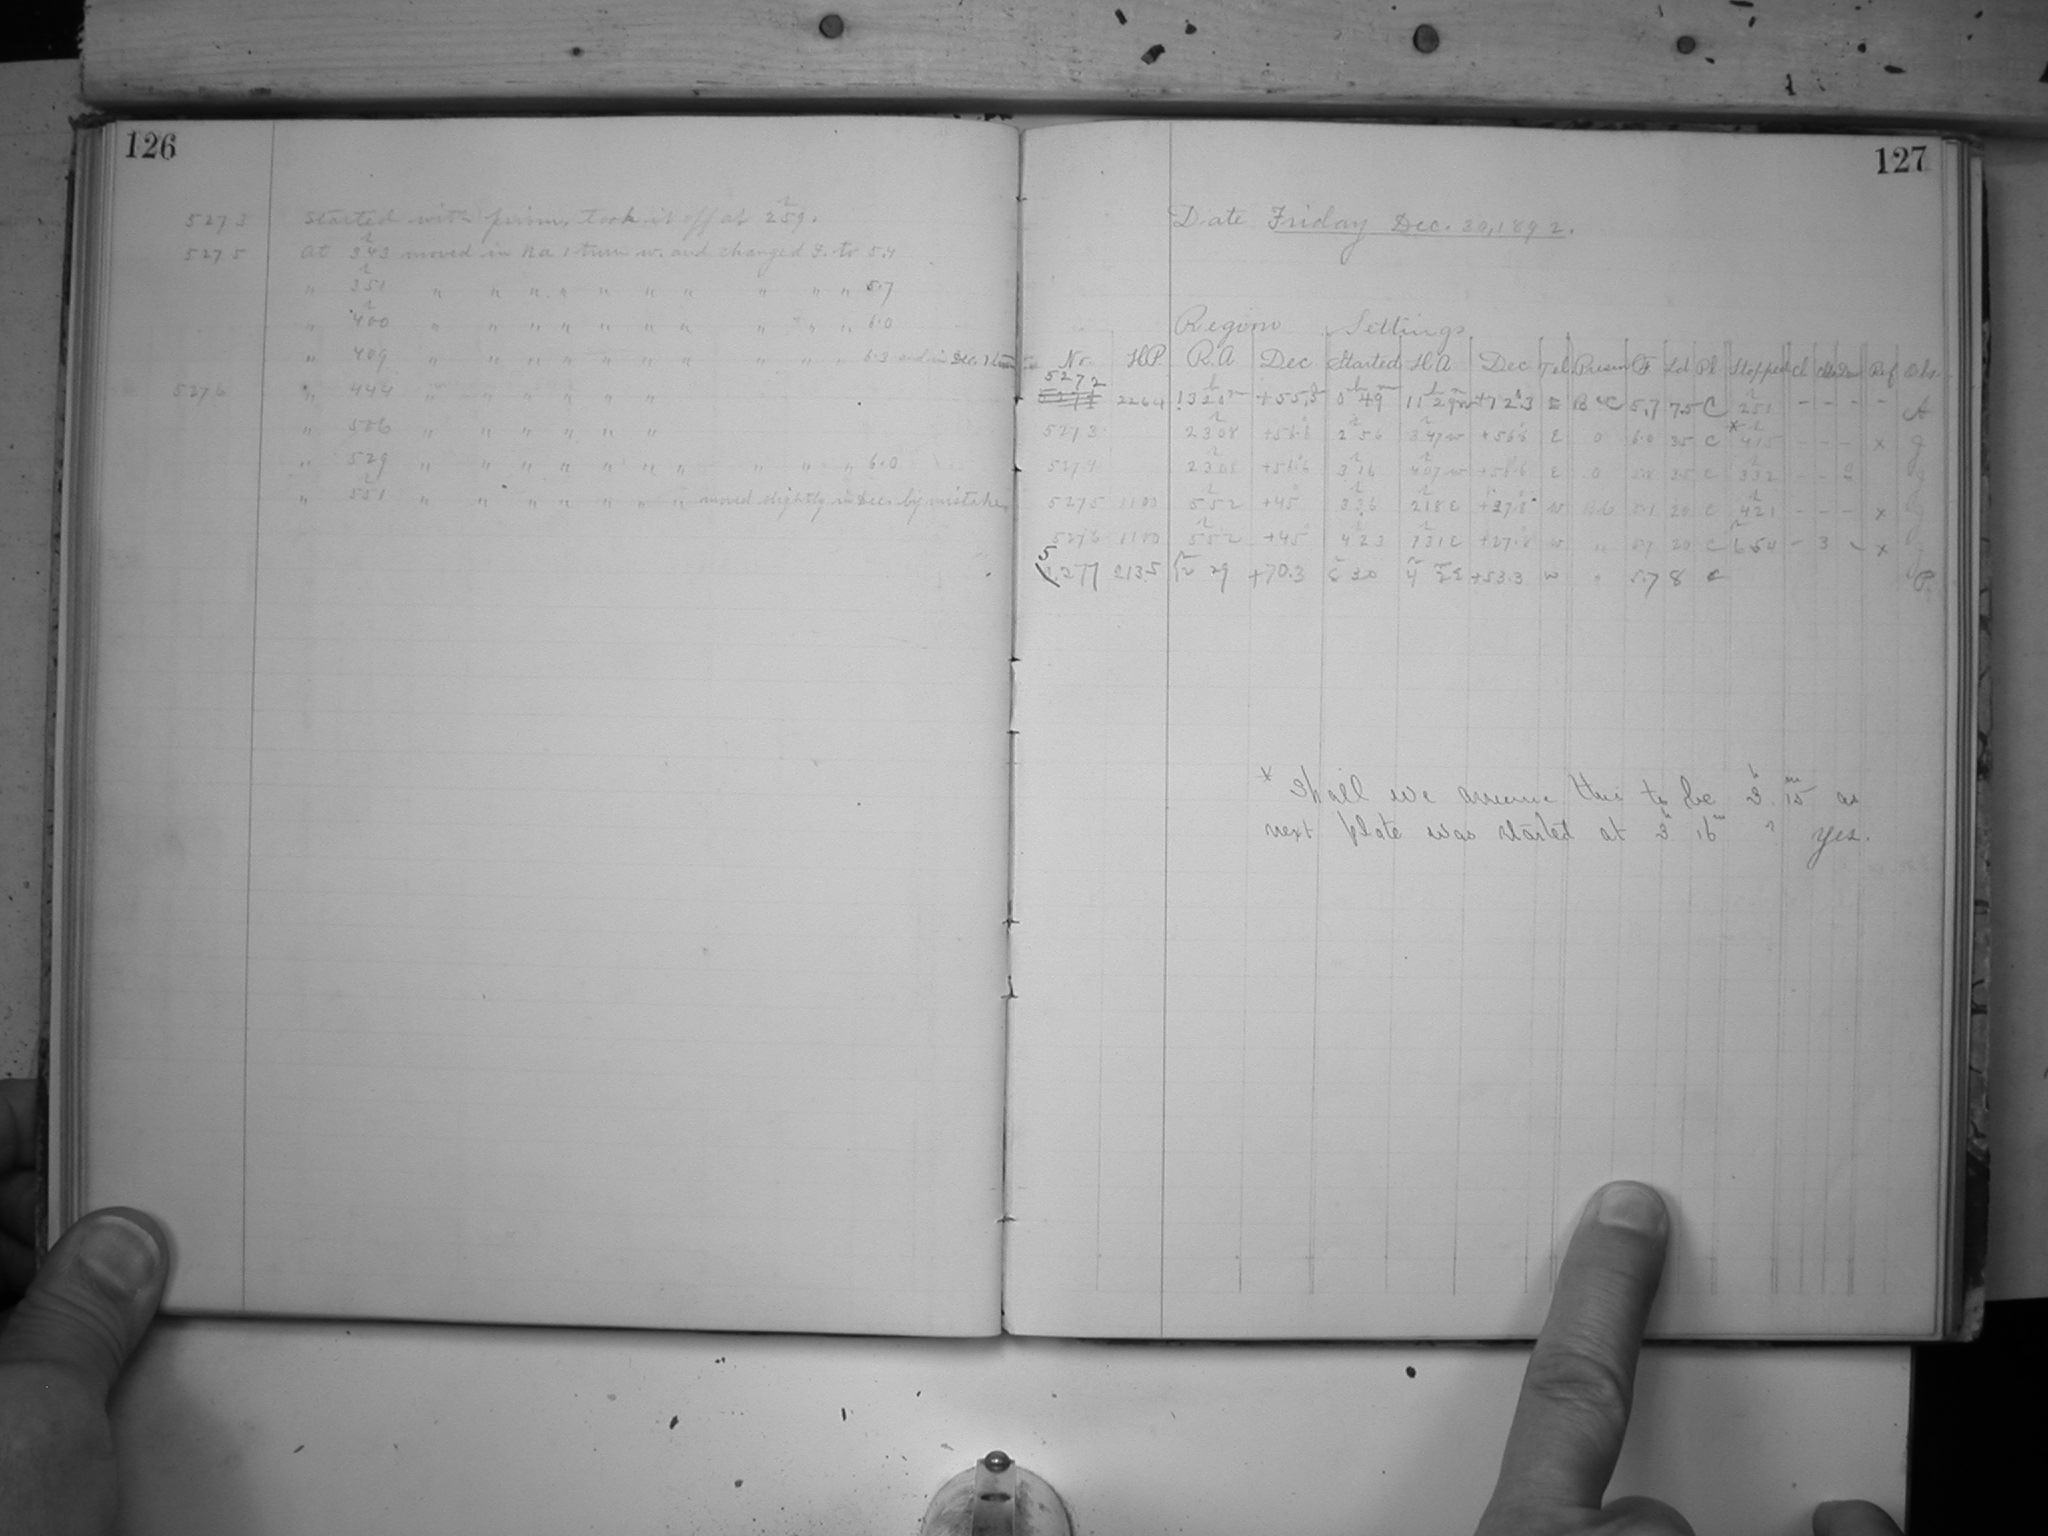 126
5273 Started with prism, took it off at 2h59.
5275 At 3h43 moved in RA 1 turn w. and changed F. to 5.4
" 3h51 " " " " " " " " " " 5.7
" 4h00 " " " " " " " " " " 6.0
" 409 " " " " " " " " " " 6.3 and in Dec. 1 turn
5276 " 444 " " " " " " "
" 506 " " " " " " "
" 529 " " " " " " " " " " " 6.0
" 5h51 " " " " " " moved slightly in Dec. by mistake.
127
Date Friday Dec. 30, 1892.
Region Settings
No. H.P. R.A Dec Started H A Dec Tel Prism F Ld Pl Stopped cl Ref Obs.
5272
2264 1320m +55.5 0h49m 11h29m +72.3 E B & C 5.7 75 C 251 - - - - A
5273 2308 +56.6 2h56 347w +56.6 E 0 6.0 35 C *415 - - - x J
5274 2308 +56.6 3h16 407w +56.6 E 0 5.8 35 C 332 - - J
5275 1100 552 +45 336 218E +37.8 W 5.1 20 C 421 - - - x J
5276 1100 552 +45 423 131E W " 5.7 20 C 654 - 3 - x J
5277 2135 12 29 +70.3 6 30 4 2E +53.3 w " 5.7 8 C P.
* Shall we assume this to be 3h 15m as
next plate was started at 3h 16m ? Yes.